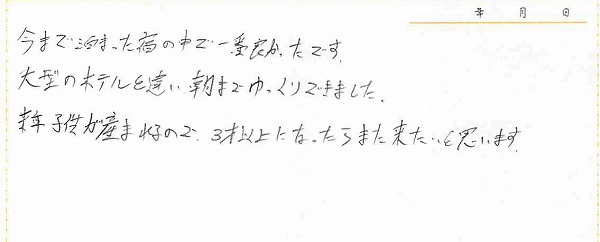 年 月 日
今まで泊まった宿の中で一番良かったです。
大型のホテルと違い朝までゆっくりできました。
来年子供が産まれるので、3才以上になったらまた来たいと思います。